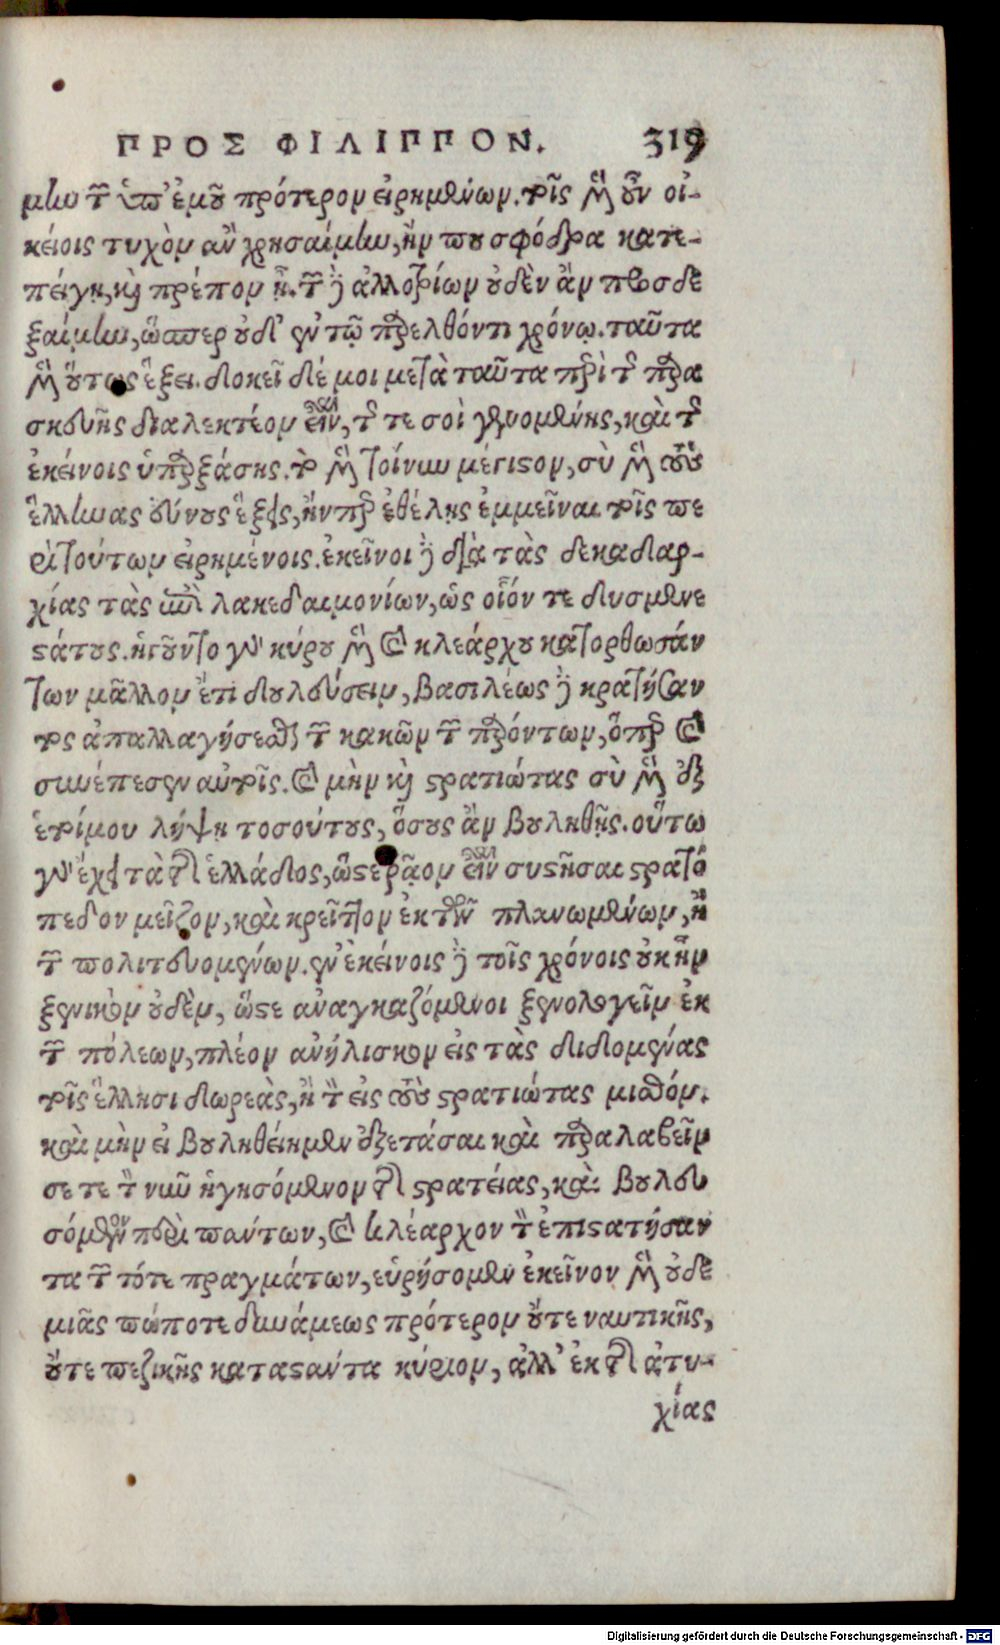 ΠΡΟΣ ΦΙΛΙΠΠΟΝ. 319
μην τῶν ὑπ' ἐμοῦ πρότερον εἰρημένων. τοῖς μὲν οὖν οἰ-
κείοις τυχὸν ἂν χρησαίμην, ἤν που σφόδρα κατε-
πείγῃ, καὶ πρέπον ᾖ. τῶν δὲ ἀλλοτρίων οὐδὲν ἂν προσδε
ξαίμην, ὥσπερ οὐδ' ἐν τῷ παρελθόντι χρόνῳ. ταῦτα
μὲν οὕτως ἕξει. δοκεῖ δέ μοι μετὰ ταῦτα περὶ τῆς παρα
σκευῆς διαλεκτέον εἶναι, τῆς τε σοὶ γενομένης, καὶ τῆς
ἐκείνοις ὑπαρξάσης. τὸ μὲν τοίνυν μέγιστον, σὺ μὲν τοὺς
ἕλληνας εὔνους ἕξεις, ἤνπερ ἐθέλῃς ἐμμεῖναι τοῖς πε
ρὶ τούτων εἰρημένοις. ἐκεῖνοι δὲ διὰ τὰς δεκαδαρ-
χίας τὰς ἐπὶ λακεδαιμονίων, ὡς οἷόν τε δυσμενε
στάτους. ἡγοῦντο γὰρ κύρου μὲν καὶ κλεάρχου κατορθωσάν
των μᾶλλον ἔτι δουλεύσειν, βασιλέως δὲ κρατήσαν
τος ἀπαλλαγήσεσθαι τῶν κακῶν τῶν παρόντων, ὅπερ καὶ
συνέπεσεν αὐτοῖς. καὶ μὴν καὶ στρατιώτας σὺ μὲν ἐξ
ἑτοίμου λήψῃ τοσούτους, ὅσους ἂν βουληθῇς. οὕτω
γὰρ ἔχει τὰ τῆς ἑλλάδος, ὥστε ρᾷον εἶναι συστῆσαι στρατό
πεδον μεῖζον, καὶ κρεῖττον ἐκ τῶν πλανωμένων, ἢ
τῶν πολιτευομένων. ἐν ἐκείνοις δὲ τοῖς χρόνοις οὐκ ἦν
ξενικὸν οὐδὲν, ὥστε ἀναγκαζόμενοι ξενολογεῖν ἐκ
τῶν πόλεων, πλέον ἀνήλισκον εἰς τὰς διδομένας
τοῖς ἕλλησι δωρεὰς, ἢ τὸν εἰς τοὺς στρατιώτας μισθόν.
καὶ μὴν εἰ βουληθείημεν ἐξετάσαι καὶ παραλαβεῖν
σε τε τὸν νῦν ἡγησόμενον τῆς στρατείας, καὶ βουλευ
σόμενον περὶ πάντων, καὶ κλέαρχον τὸν ἐπιστατήσαν
τα τῶν τότε πραγμάτων, εὑρήσομεν ἐκεῖνον μὲν οὐδε
μιᾶς πώποτε δυνάμεως πρότερον οὔτε ναυτικῆς,
οὔτε πεζικῆς καταστάντα κύριον, ἀλλ' ἐκ τῆς ἀτυ-
χίας
Digitalisierung gefördert durch die Deutsche Forschungsgemeinschaft - DFG